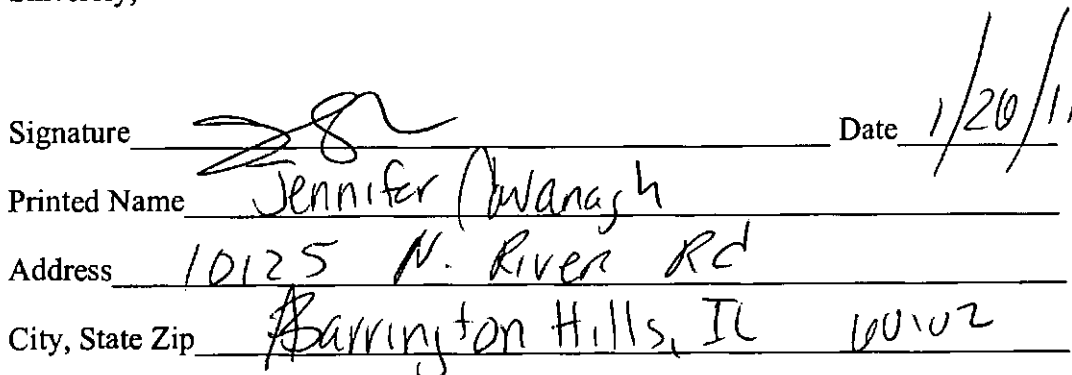 Signature Date 1/20/11
Printed Name Jennifer
Address 10125 N. River Rd
City, State Zip Barrington Hills, IL 60102